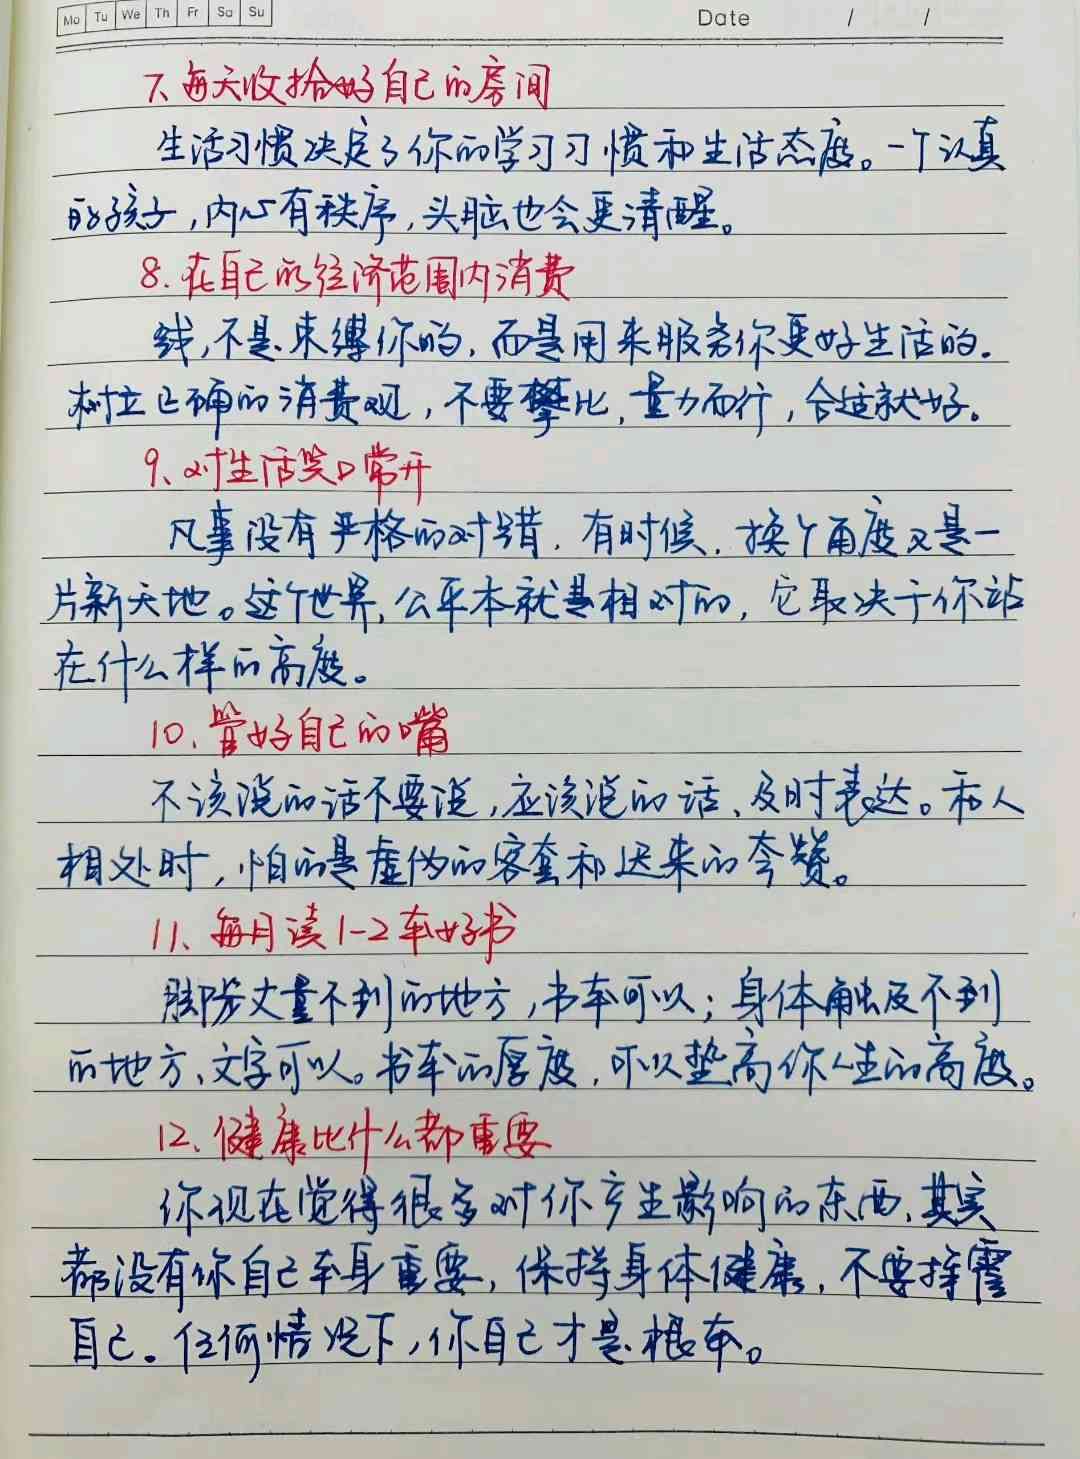 Mo Tu We Th Fr Sa Su Date / /
7、每天收拾好自己的房间
生活习惯决定了你的学习习惯和生活态度。一个认真
的孩子,内心有秩序,头脑也会更清醒。
8.在自己的经济范围内消费
钱,不是束缚你的,而是用来服务你更好生活的.
树立正确的消费观,不要攀比,量力而行,合适就好。
9、对生活笑口常开
凡事没有严格的对错.有时候.换个角度又是一
片新天地。这个世界,公平本就是相对的,它取决于你站
在什么样的高度。
10、管好自己的嘴
不该说的话不要说,应该说的话、及时表达。和人
相处时,怕的是虚伪的客套和迟来的夸赞。
11、每月读1-2本好书
脚步丈量不到的地方,书本可以;身体触及不到
的地方、文字可以。书本的厚度,可以垫高你人生的高度。
12、健康比什么都重要
你现在觉得很多对你产生影响的东西、其实
都没有你自己本身重要,保持身体健康,不要挥霍
自己.任何情况下,你自己才是根本。